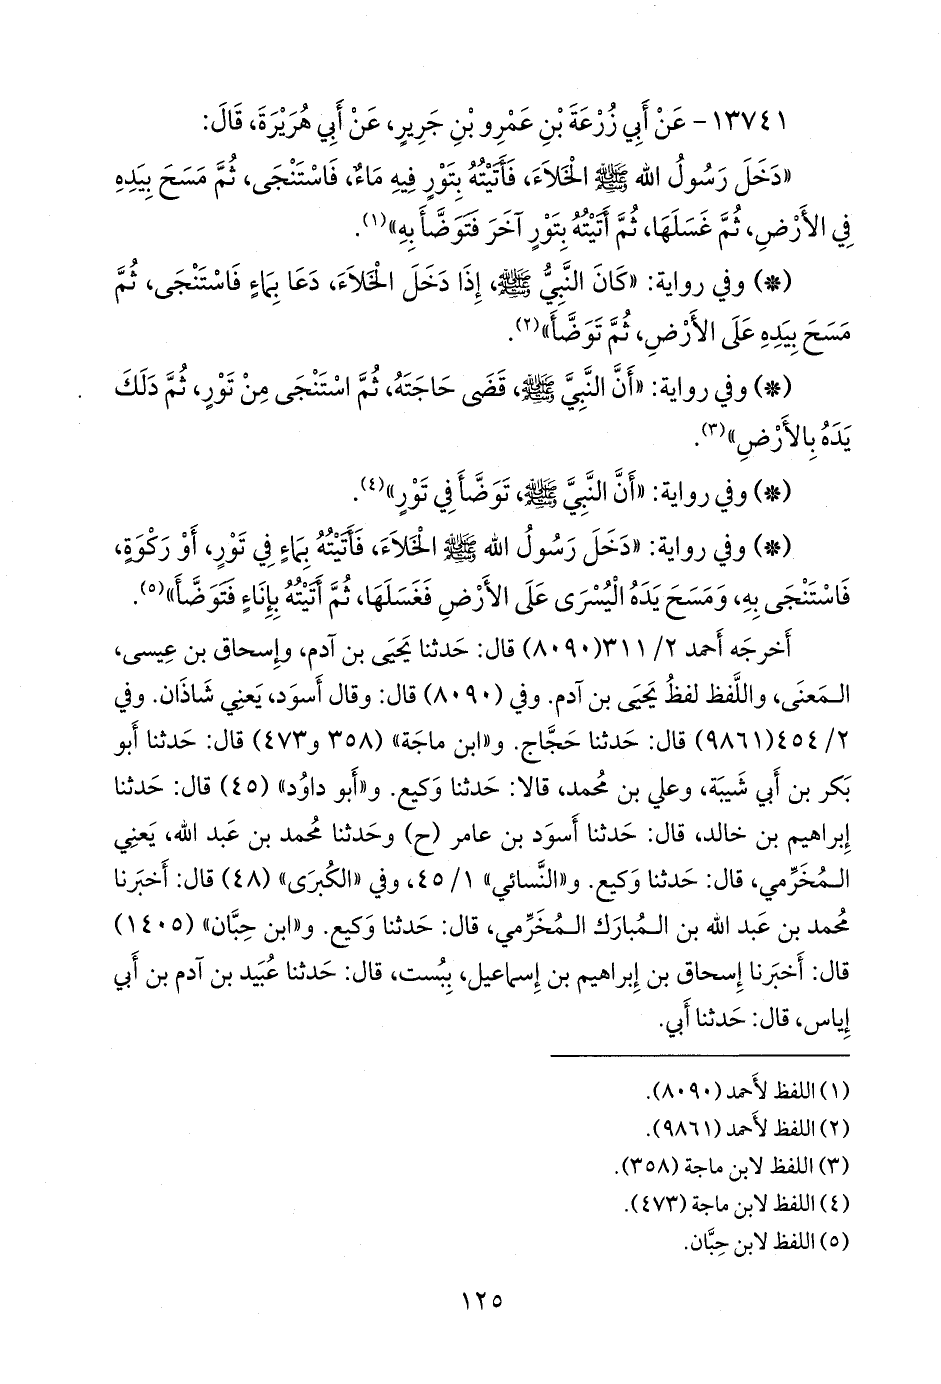 ١٣٧٤١- عَنْ أَبِي زُرْعَةَ بْنِ عَمْرِو بْنِ جَرِيرٍ، عَنْ أَبِي هُرَيْرَةَ، قَالَ:
«دَخَلَ رَسُولُ الله ﷺ الْخَلَاءَ، فَأَتَيْتُهُ بِتَوْرٍ فِيهِ مَاءٌ، فَاسْتَنْجَى، ثُمَّ مَسَحَ بِيَدِهِ
فِي الأَرْضِ، ثُمَّ غَسَلَهَا، ثُمَّ أَتَيْتُهُ بِتَوْرٍ آخَرَ فَتَوَضَّأَ بِهِ»(١).
(*) وفي رواية: «كَانَ النَّبِيُّ ﷺ، إِذَا دَخَلَ الْخَلَاءَ، دَعَا بِمَاءٍ فَاسْتَنْجَى، ثُمَّ
مَسَحَ بِيَدِهِ عَلَى الأَرْضِ، ثُمَّ تَوَضَّأَ»(٢).
(*) وفي رواية: «أَنَّ النَّبِيَّ ﷺ، قَضَى حَاجَتَهُ، ثُمَّ اسْتَنْجَى مِنْ تَوْرٍ، ثُمَّ دَلَكَ
يَدَهُ بِالأَرْضِ»(٣).
(*) وفي رواية: «أَنَّ النَّبِيَّ ﷺ، تَوَضَّأَ فِي تَوْرٍ»(٤).
(*) وفي رواية: «دَخَلَ رَسُولُ الله ﷺ الْخَلَاءَ، فَأَتَيْتُهُ بِمَاءٍ فِي تَوْرٍ، أَوْ رَكْوَةٍ،
فَاسْتَنْجَى بِهِ، وَمَسَحَ يَدَهُ الْيُسْرَى عَلَى الأَرْضِ فَغَسَلَهَا، ثُمَّ أَتَيْتُهُ بِإِنَاءٍ فَتَوَضَّأَ»(٥).
أَخرجَه أَحمد ٢/ ٣١١(٨٠٩٠) قال: حَدثنا يَحيَى بن آدم، وإِسحاق بن عِيسى،
المَعنَى، واللَّفظ لفظُ يَحيَى بن آدم. وفي (٨٠٩٠) قال: وقال أَسوَد، يَعنِي شَاذَان. وفي
٢/ ٤٥٤(٩٨٦١) قال: حَدثنا حَجَّاج. و«ابن ماجَة» (٣٥٨ و٤٧٣) قال: حَدثنا أَبو
بَكر بن أَبي شَيبَة، وعلي بن مُحمد، قالا: حَدثنا وَكيع. و«أَبو داوُد» (٤٥) قال: حَدثنا
إِبراهيم بن خالد، قال: حَدثنا أَسوَد بن عامر (ح) وحَدثنا مُحمد بن عَبد الله، يَعنِي
المُخَرِّمي، قال: حَدثنا وَكيع. و«النَّسائي» ١/ ٤٥، وفي «الكُبرَى» (٤٨) قال: أَخبَرنا
مُحمد بن عَبد الله بن المُبارَك المُخَرِّمي، قال: حَدثنا وَكيع. و«ابن حِبَّان» (١٤٠٥)
قال: أَخبَرنا إِسحاق بن إِبراهيم بن إِسماعيل، بِبُست، قال: حَدثنا عُبَيد بن آدم بن أَبي
إِياس، قال: حَدثنا أَبي.
(١) اللفظ لأَحمد (٨٠٩٠).
(٢) اللفظ لأَحمد (٩٨٦١).
(٣) اللفظ لابن ماجة (٣٥٨).
(٤) اللفظ لابن ماجة (٤٧٣).
(٥) اللفظ لابن حِبَّان.
١٢٥